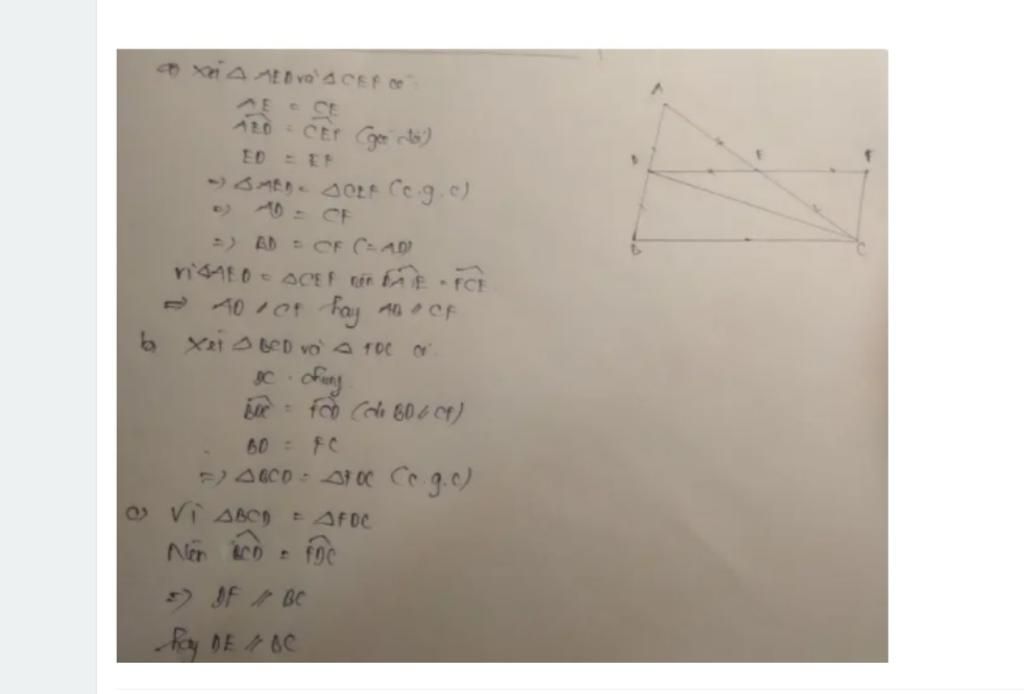 a) Xét △ AED và △ CEF có:
AE = CE
AED = CEF (góc đđ)
ED = EF
=> △AED = △CEF (c.g.c)
=> AD = CF
=> BD = CF (=AD)
Vì △AED = △CEF nên DAE = FCE
=> AD // CF hay AB // CF
b Xét △ BCD và △ FDC có
DC chung
BDC = FCD (do BD // CF)
BD = FC
=> △BCD = △FDC (c.g.c)
c) Vì △BCD = △FDC
Nên BCD = FDC
=> DF // BC
hay DE // BC
A
D
E
F
B
C